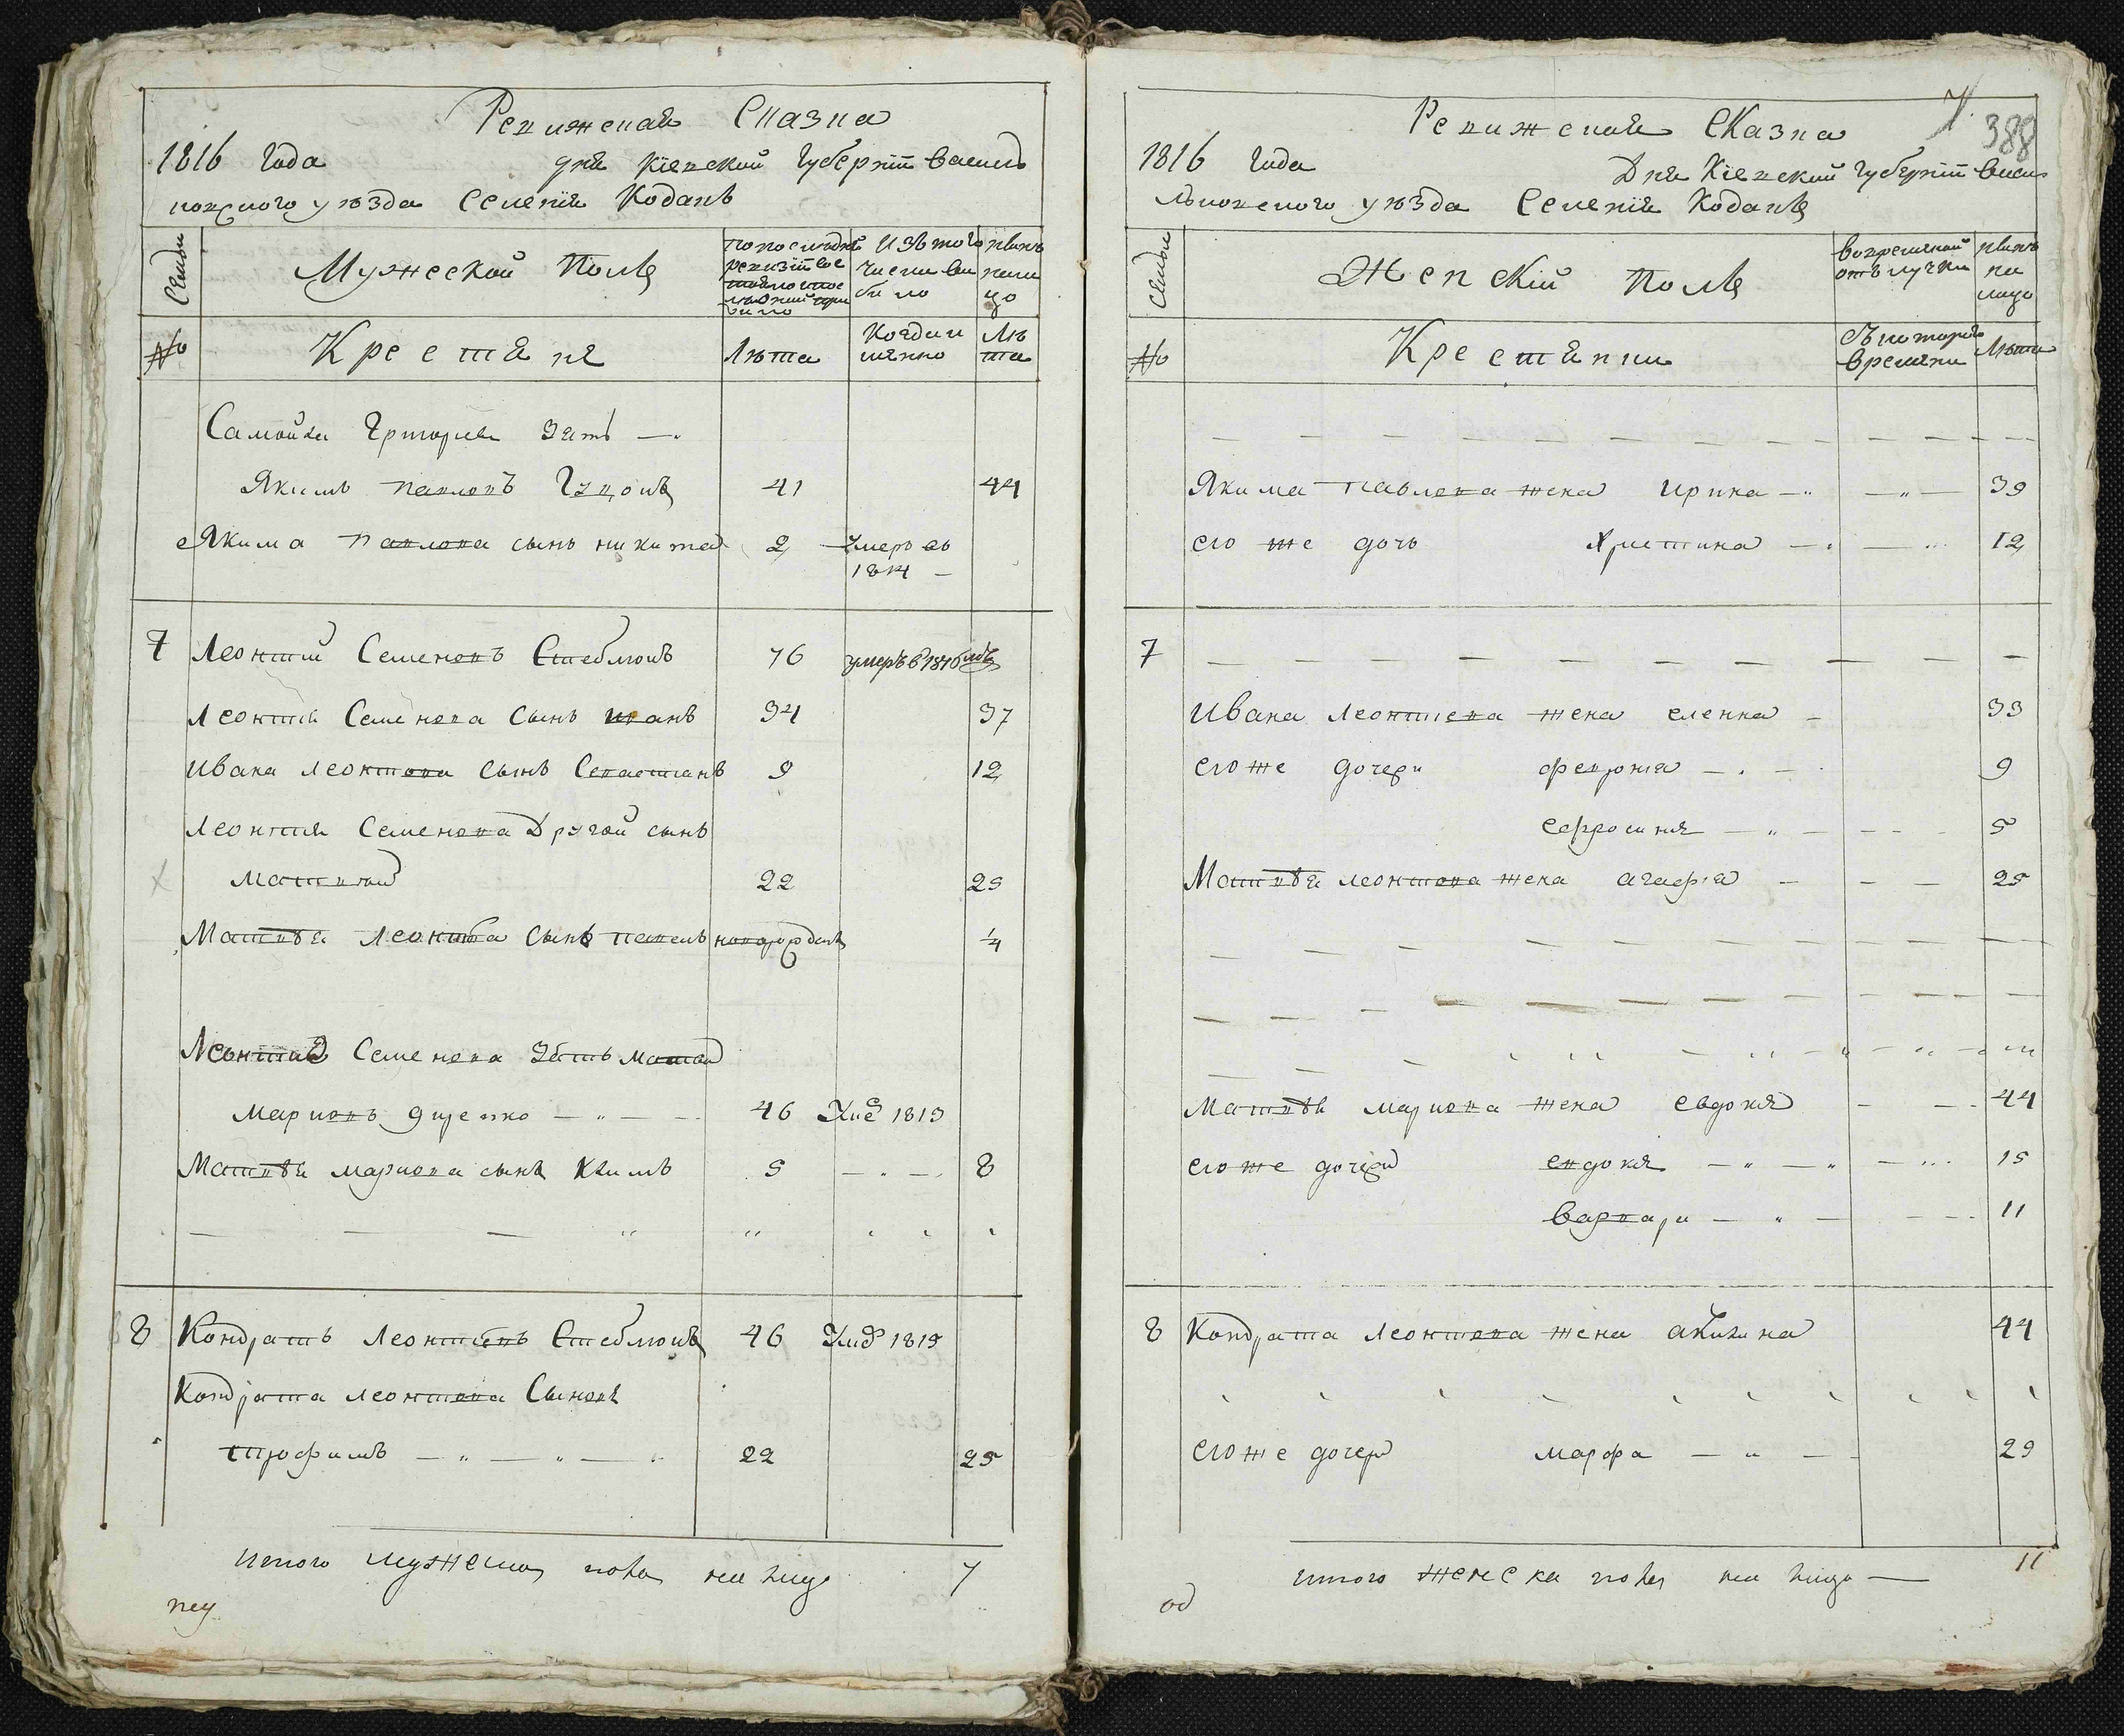 Ревижская Сказка
1816 года дня Кіевской губерніи Василь
ковского уѣзда Селенія Коданъ
Семьи
Мужеской Полъ
Изъ того
числа вы
было
нынѣ
на ли
цо
№
Крестяня
Лѣта
Когда и
мянно
Лѣ
та
Самойла Григориева зять —
Якимъ Павловъ 41 44
Якима Павлова сынъ никита 2 умеръ въ
1814 —
7 Леонтий Семеновъ Стеблюкъ 76 умеръ в 1816
Леонтия Семенова Сынъ иванъ 34 37
Ивана Леонтова Сынъ Севастианъ 9 12
Леонтия Семенова Другой сынъ
Матвий 22 25
Матвѣя Леонтова Сынъ павелъ новорожденъ ¼
Леонтия Семенова Зять Матвий
Марковъ Ященко — „ — 46 Умѣ 1813
Матвѣя маркова сынъ Климъ 5 — „ — 8
8 Кондратъ Леонтовъ Стеблюкъ 46 Умѣ 1815
Кондрата Леонтова Сыновѣ
Трофимъ — „ — „ — 22 25
итого мужеска пола на лицо 7
Ревижская Сказка
7
388
1816 года Дня Кіевской губерніи Васи
льковского уѣзда Селенія Коданъ
Семьи
Женскій Полъ
вовременной
отлучки
нынѣ
на
лицо
№
Крестянки
Съ которого
времяни
Лѣта
Якима Павлова жена Ирина — „ — „ — 39
его же дочь Христина — 12
7
Ивана Леонтиева жена еленна — 33
его же дочери феврония — 9
ефросиния — „ — 5
Матвѣя Леонтова жена агафия — 25
Матвѣя маркова жена евдокия — 44
его же дочери евдокия — „ — „ 15
варвара — „ — 11
8 Кондрата Леонтова жена акилина 44
его же дочери марфа — „ — 29
итого женска пола на лицо — 11